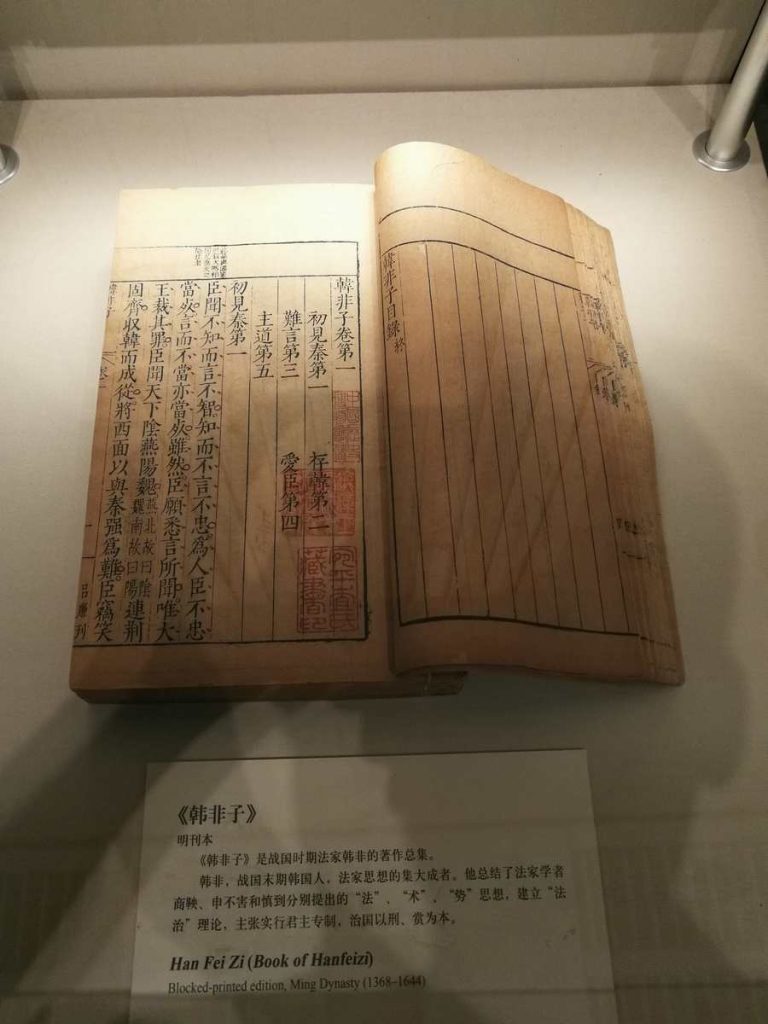 韓非子目錄終
韓非子卷第一
初見秦第一 存韓第二
難言第三 愛臣第四
主道第五
初見秦第一
臣聞不知而言不智知而不言不忠爲人臣不忠
當死言而不當亦當死雖然臣願悉言所聞唯大
王裁其罪臣聞天下陰燕陽魏燕北故曰陰魏南故曰陽連荊
固齊收韓而成從將西面以與秦强爲難臣竊笑
韓非子
藏書印
《韩非子》
明刊本
《韩非子》是战国时期法家韩非的著作总集。
韩非，战国末期韩国人，法家思想的集大成者。他总结了法家学者
商鞅、申不害和慎到分别提出的“法”、“术”、“势”思想，建立“法
治”理论，主张实行君主专制，治国以刑、赏为本。
Han Fei Zi (Book of Hanfeizi)
Blocked-printed edition, Ming Dynasty (1368–1644)